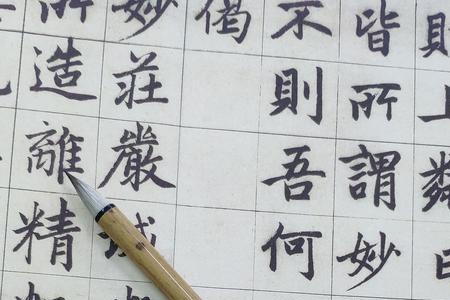 皆所謂妙
不則吾何
偈
妙莊嚴城
所造離精